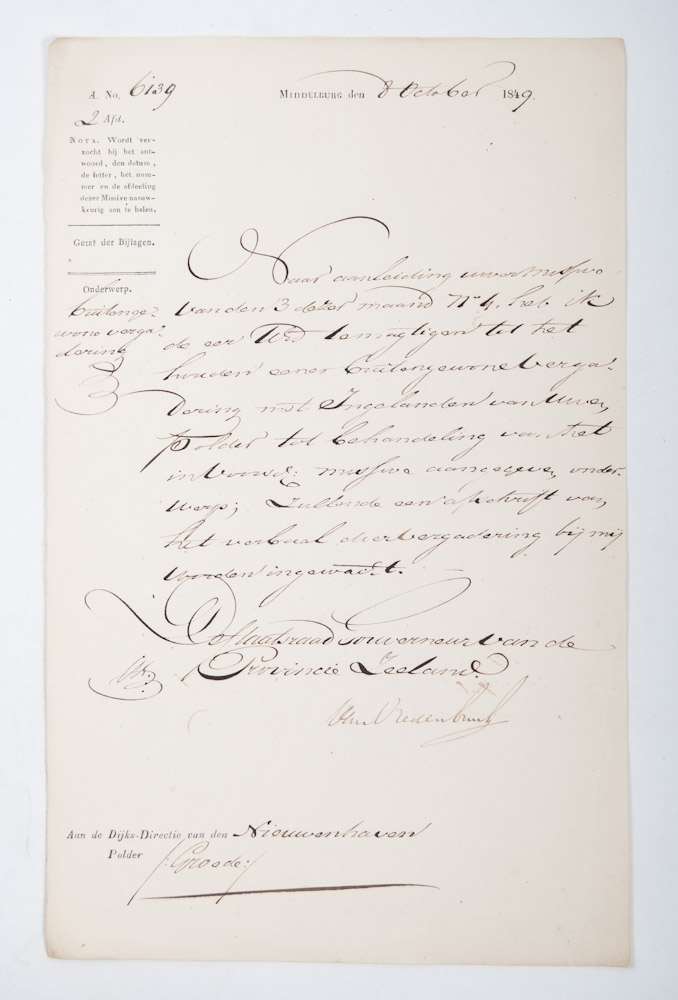 A. No. 6139
MIDDELBURG den 8 October 1849.
2 Afd.
NOTA. Wordt ver-
zocht bij het ant-
woord, den datum,
de letter, het num-
mer en de afdeeling
dezer Missive nauw-
keurig aan te halen.
Getal der Bijlagen.
Onderwerp.
buitenge-
wone verga-
dering
Naar aanleiding uwer missive
van den 3 dezer maand No 4. heb ik
de eer UEd te magtigen tot het
houden eener buitengewone verga-
dering met Ingelanden van Uwen
polder tot behandeling van het
in voorsd: missive aangegeven onder-
werp; Zullende een afschrift van
het verbaal dier vergadering bij mij
worden ingewacht.
De Staatsraad Gouverneur van de
Provincie Zeeland.
Van Vredenburch
Aan de Dijks-Directie van den Nieuwenhaven
Polder /:Groede:/